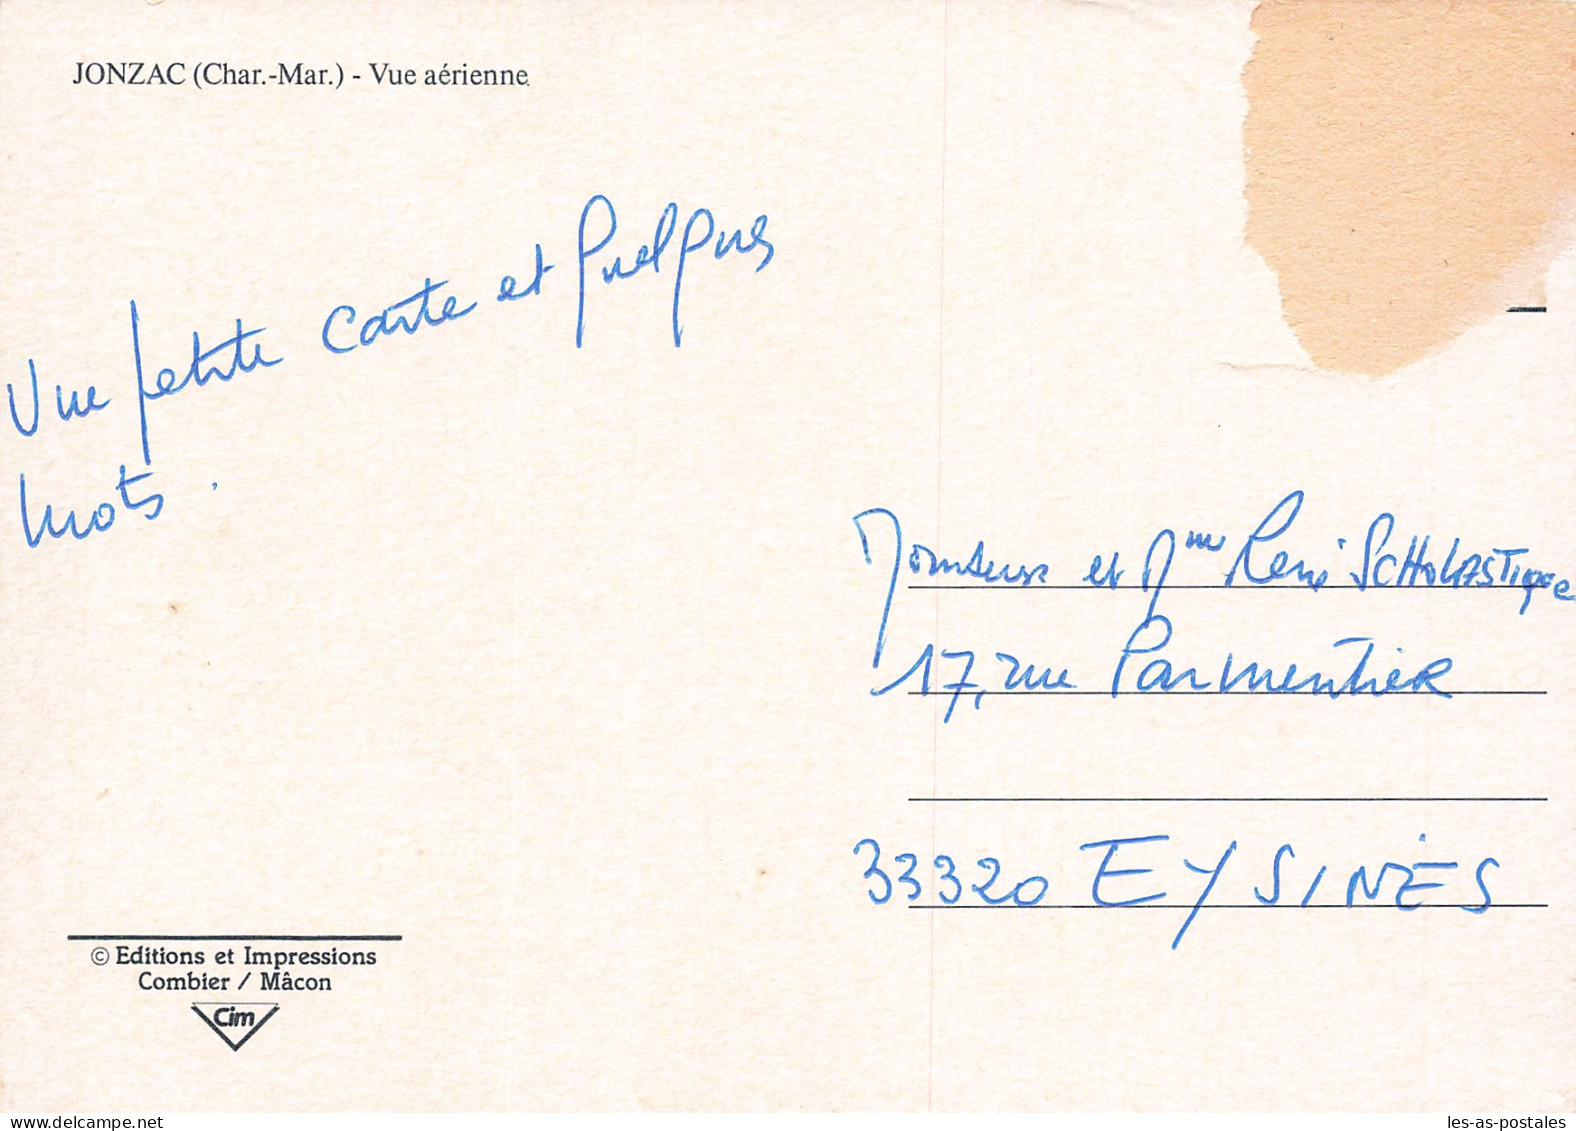 JONZAC (Char.-Mar.) - Vue aérienne
Une petite carte et quelques
mots.
Monsieur et Mme René SCHOLASTIQUE
17, rue Parmentier
33320 EYSINES
© Editions et Impressions
Combier / Mâcon
Cim
Delcampe.net
les-as-postales